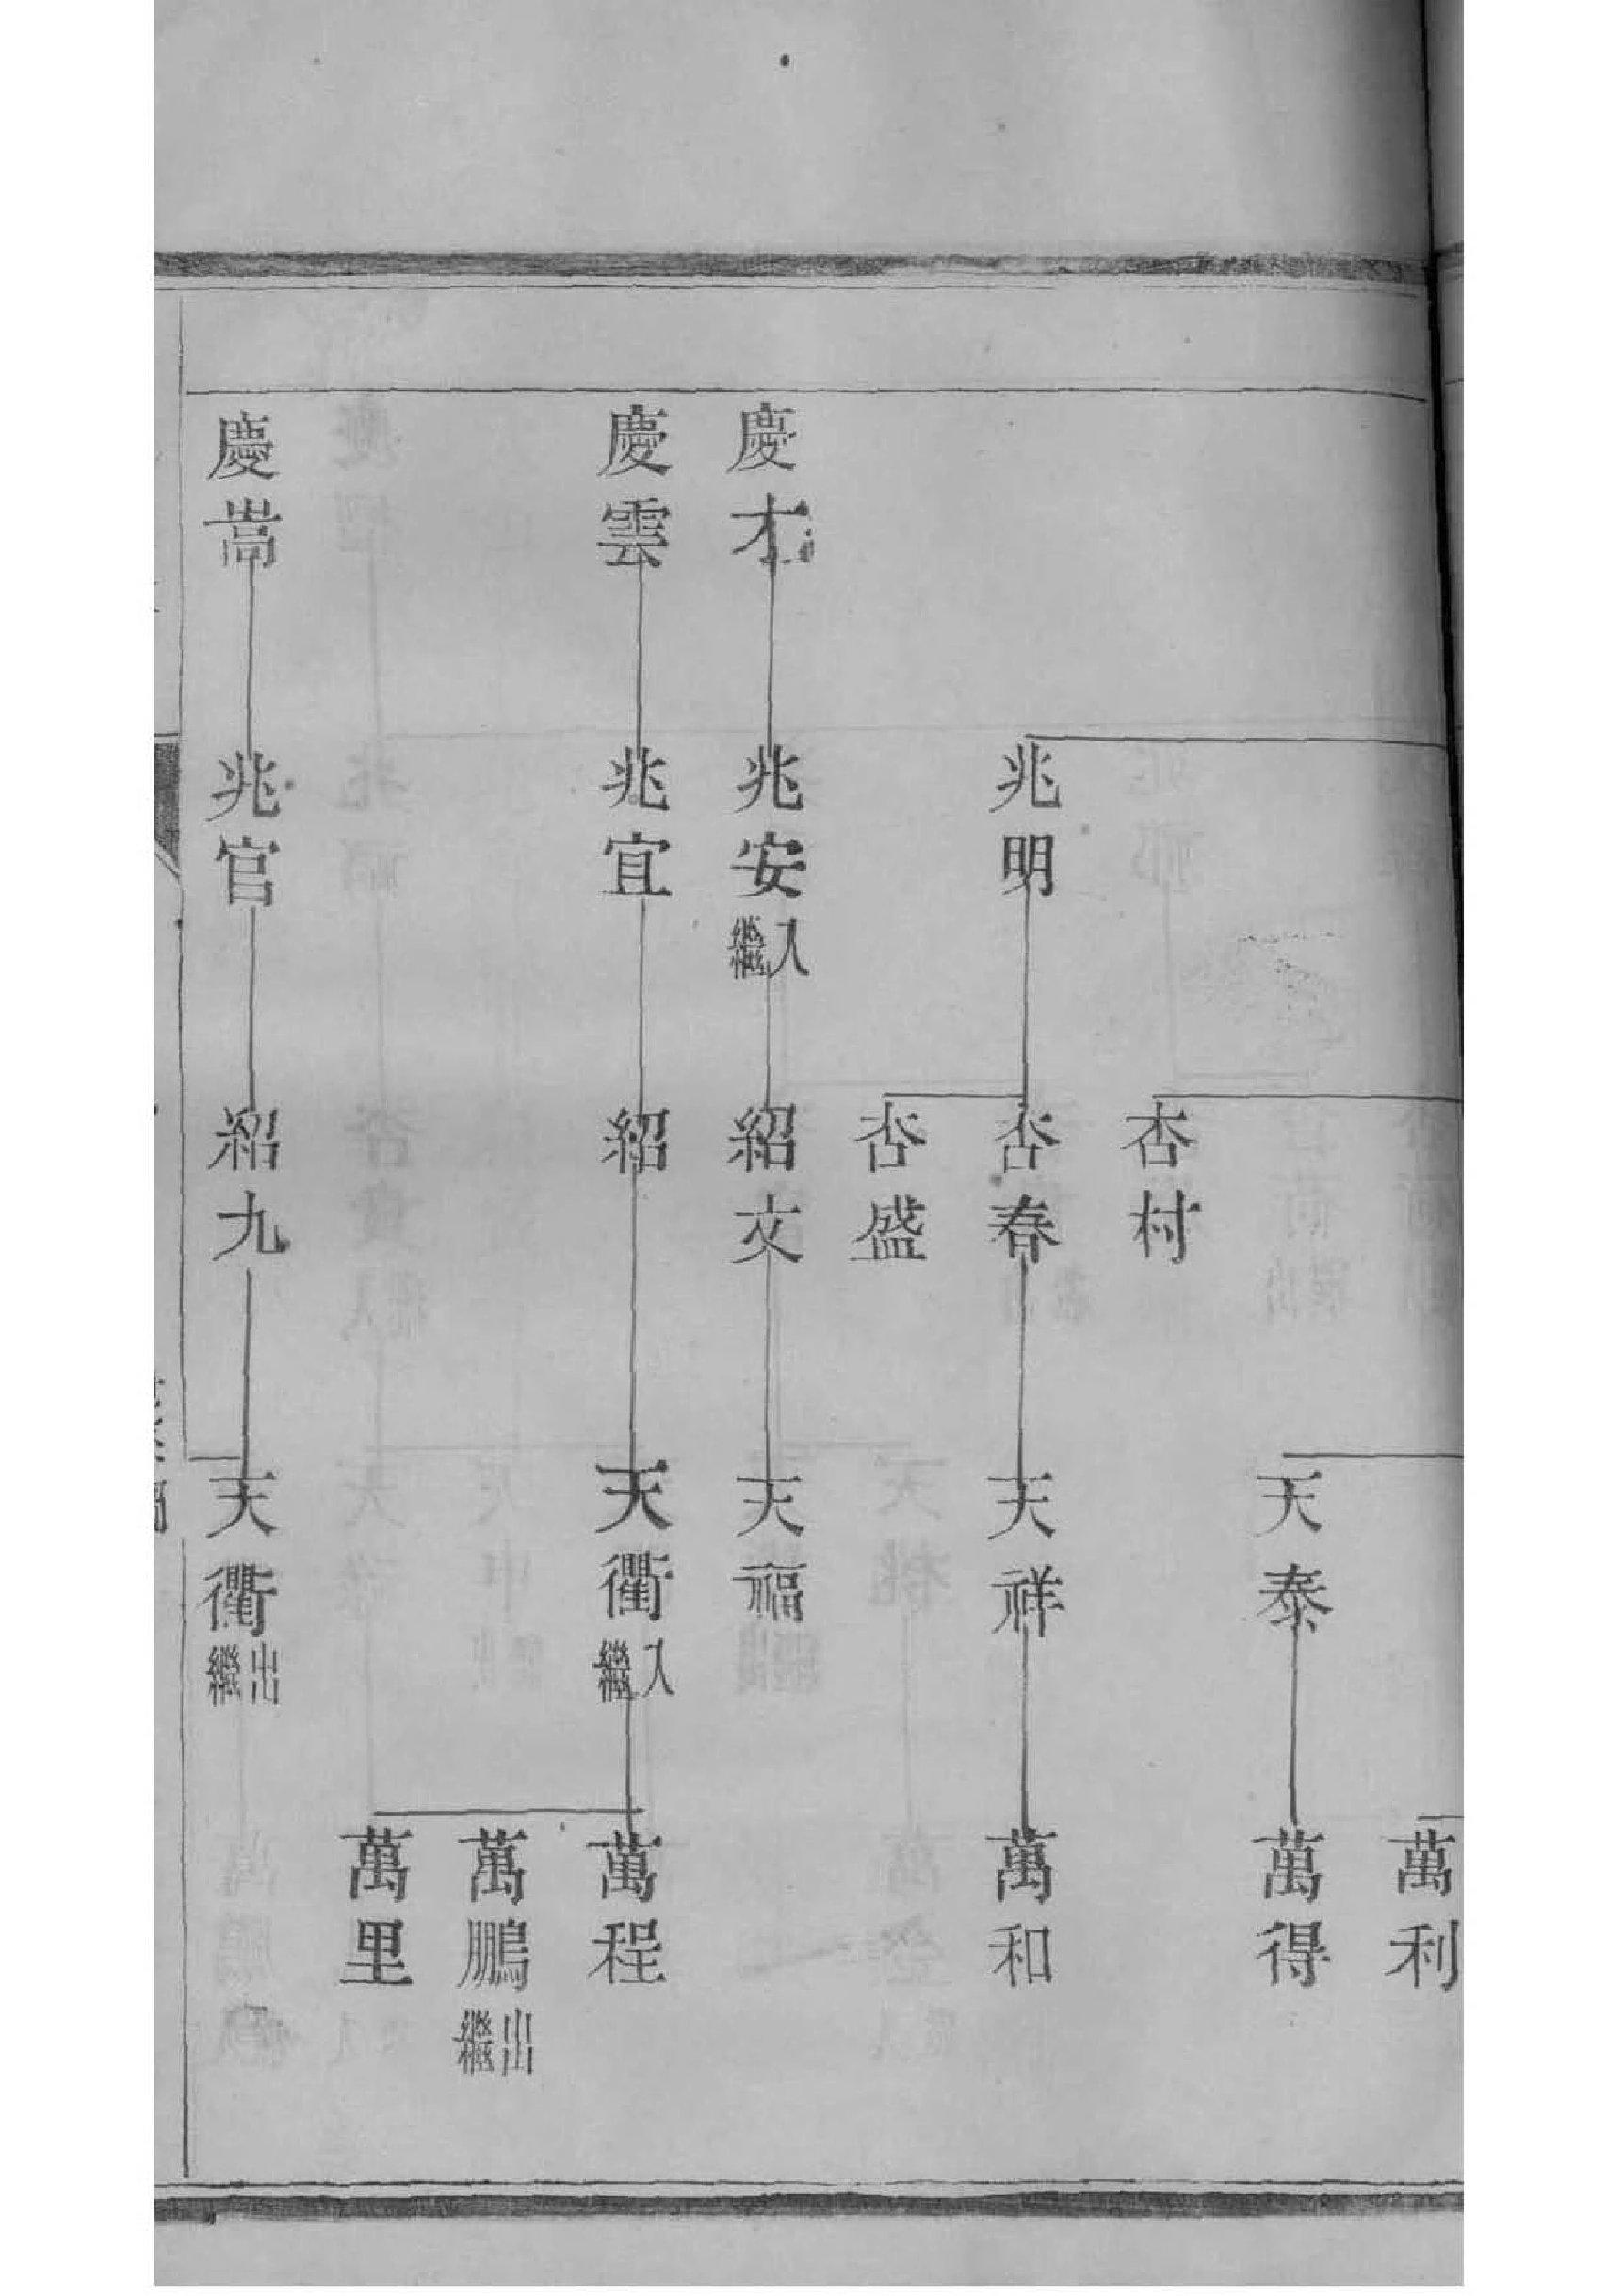 萬利
天泰
萬得
杏村
兆明
杏春
天祥
萬和
杏盛
慶才
兆安
入繼
紹文
天福
慶雲
兆宜
紹
天衢
入繼
萬程
萬鵬
出繼
萬里
慶嵩
兆官
紹九
天衢
出繼